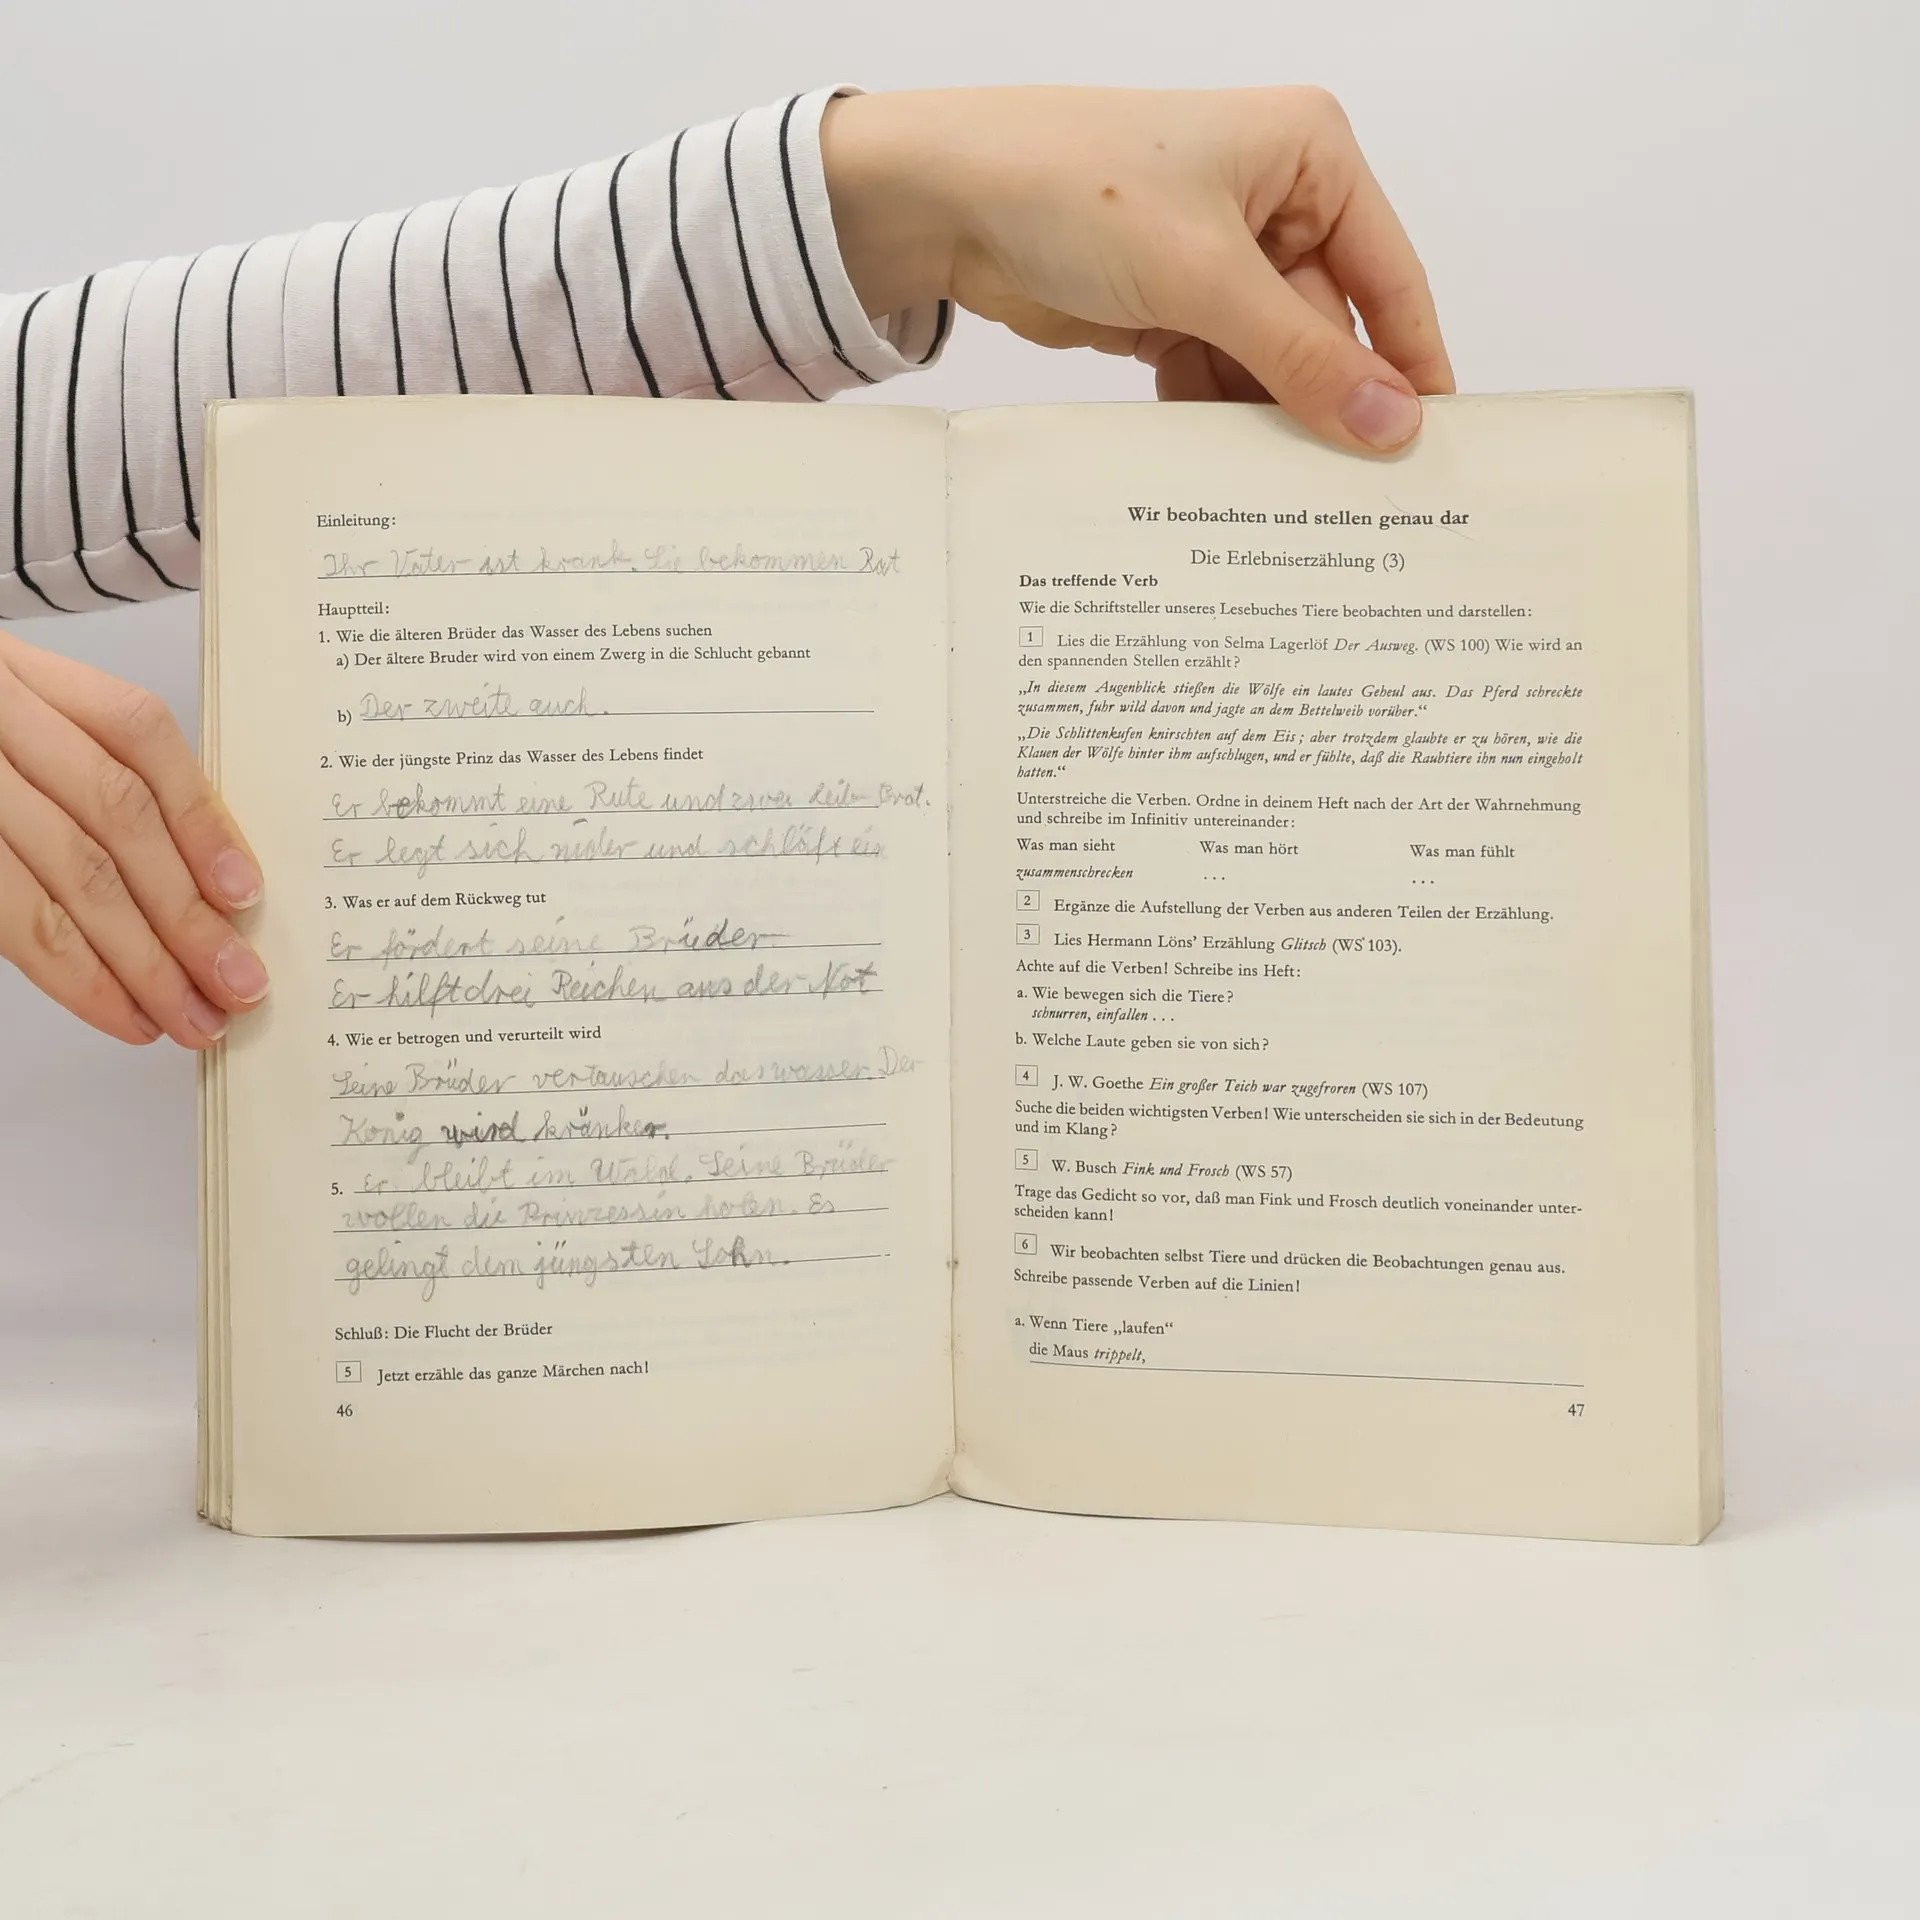 Einleitung:
Ihr Vater ist krank. Sie bekommen Rat
Hauptteil:
1. Wie die älteren Brüder das Wasser des Lebens suchen
a) Der ältere Bruder wird von einem Zwerg in die Schlucht gebannt
b) Der zweite auch.
2. Wie der jüngste Prinz das Wasser des Lebens findet
Er bekommt eine Rute und zwei Brot.
Er legt sich nider und schläft ein
3. Was er auf dem Rückweg tut
Er fördert seine Brüder
Er hilft drei Reichen aus der Not
4. Wie er betrogen und verurteilt wird
Seine Brüder vertauschen das wasser. Der
König wird kränker.
5. Er bleibt im Wald. Seine Brüder
wollen die Prinzessin holen. Es
gelingt dem jüngsten Sohn.
Schluß: Die Flucht der Brüder
5 Jetzt erzähle das ganze Märchen nach!
46
Wir beobachten und stellen genau dar
Die Erlebniserzählung (3)
Das treffende Verb
Wie die Schriftsteller unseres Lesebuches Tiere beobachten und darstellen:
1 Lies die Erzählung von Selma Lagerlöf Der Ausweg. (WS 100) Wie wird an
den spannenden Stellen erzählt?
„In diesem Augenblick stießen die Wölfe ein lautes Geheul aus. Das Pferd schreckte
zusammen, fuhr wild davon und jagte an dem Bettelweib vorüber.“
„Die Schlittenkufen knirschten auf dem Eis; aber trotzdem glaubte er zu hören, wie die
Klauen der Wölfe hinter ihm aufschlugen, und er fühlte, daß die Raubtiere ihn nun eingeholt
hatten.“
Unterstreiche die Verben. Ordne in deinem Heft nach der Art der Wahrnehmung
und schreibe im Infinitiv untereinander:
Was man sieht Was man hört Was man fühlt
zusammenschrecken ... ...
2 Ergänze die Aufstellung der Verben aus anderen Teilen der Erzählung.
3 Lies Hermann Löns’ Erzählung Glitsch (WS 103).
Achte auf die Verben! Schreibe ins Heft:
a. Wie bewegen sich die Tiere?
schnurren, einfallen . . .
b. Welche Laute geben sie von sich?
4 J. W. Goethe Ein großer Teich war zugefroren (WS 107)
Suche die beiden wichtigsten Verben! Wie unterscheiden sie sich in der Bedeutung
und im Klang?
5 W. Busch Fink und Frosch (WS 57)
Trage das Gedicht so vor, daß man Fink und Frosch deutlich voneinander unter-
scheiden kann!
6 Wir beobachten selbst Tiere und drücken die Beobachtungen genau aus.
Schreibe passende Verben auf die Linien!
a. Wenn Tiere „laufen“
die Maus trippelt,
47